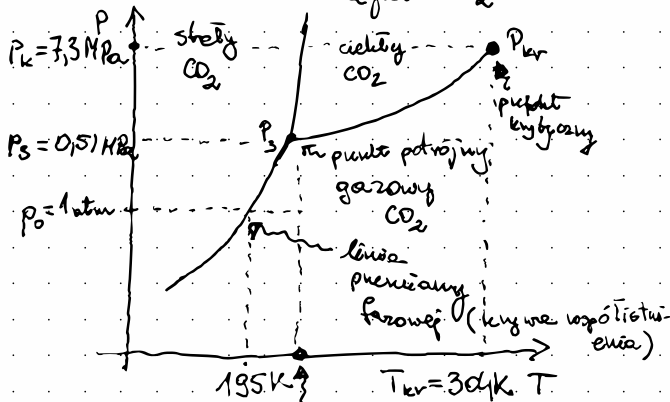 P
P_k = 7,3 MPa
stały
CO₂
ciekły
CO₂
P_kr
punkt
krytyczny
P_3 = 0,51 MPa
P_3
punkt potrójny
gazowy
CO₂
p_0 = 1 atm
linia
przemiany
fazowej (krzywa współistnienia)
195K
T_kr = 304K
T